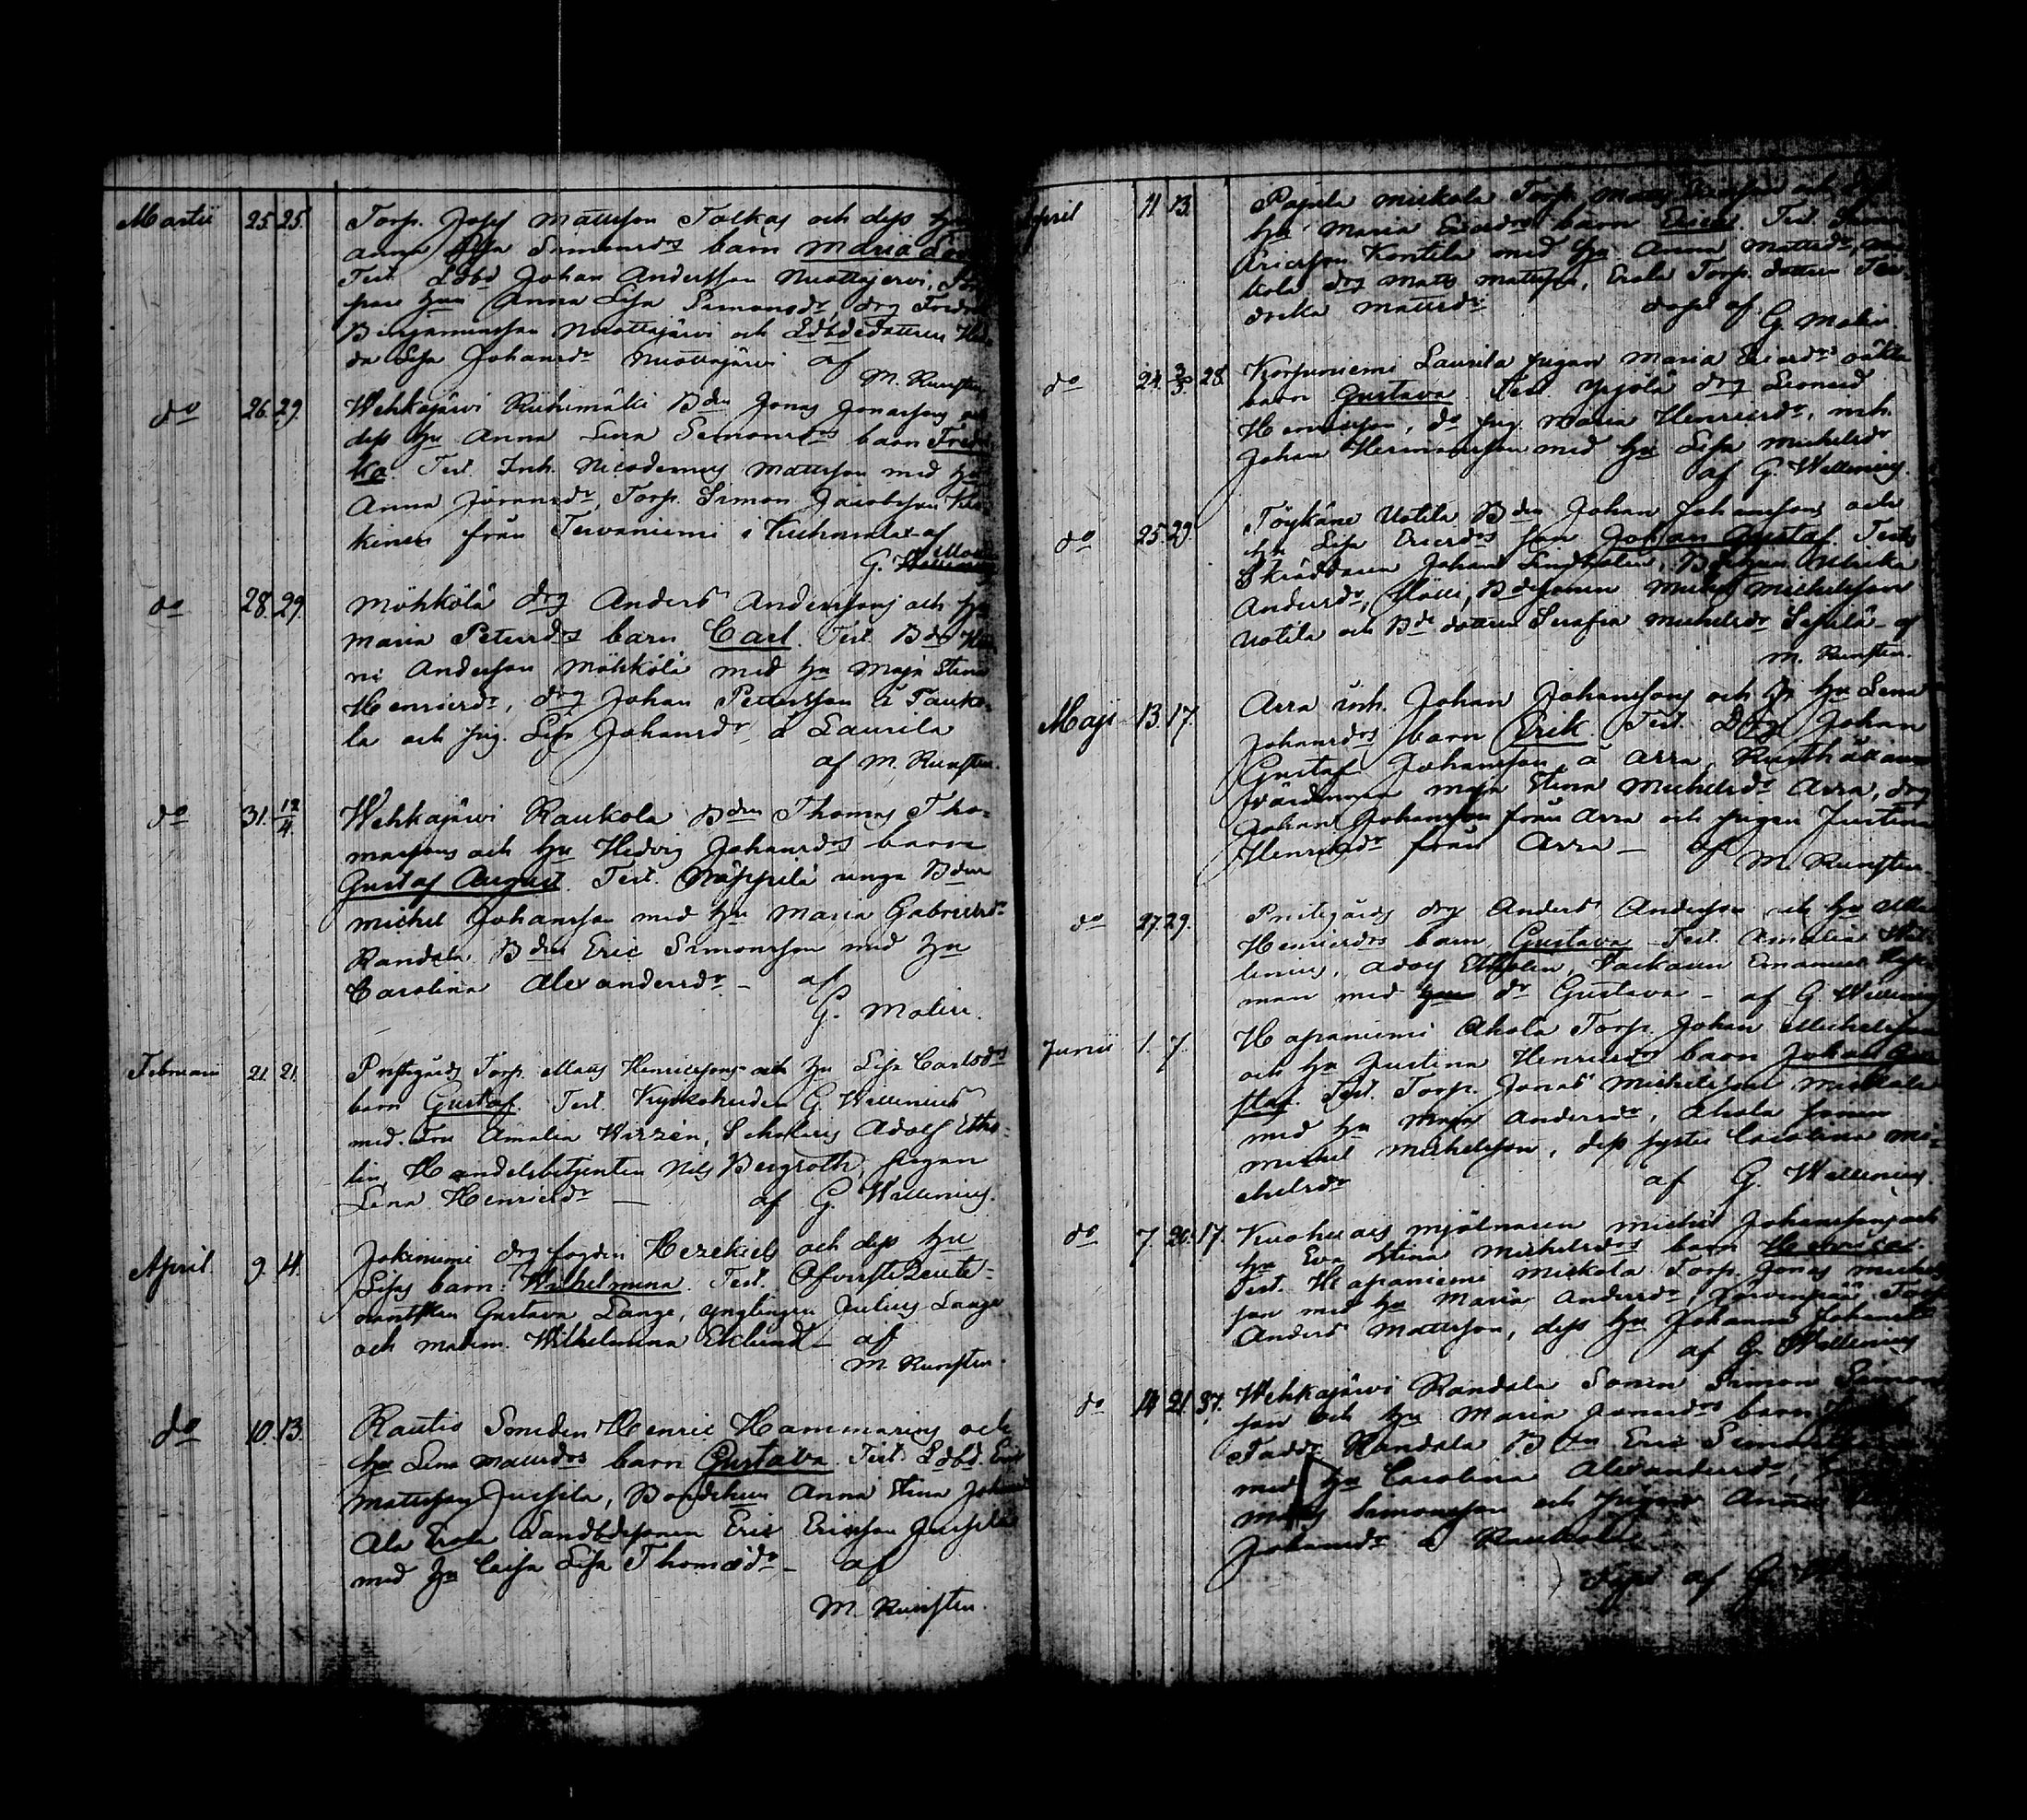 Martii 25. 25. Torp. Josef Mattsson Tolkas och dess hu
anna Lisa Simonsdrs barn Maria
Test. Ldbd Johan Andersson Nuottajervi,
hu Anna Lisa Simonsdr, drg Fredrik
Benjaminsson Nuottajärvi och Ldbdedottren
Lisa Johansdr Nuottajärvi af
M. Runsten.
do 26. 29. Wehkajärvi Riihimäki Bdn Jonas Jonassons och
dess hu Anna Lena Simonsdrs barn Fredri
ka. Test. Inh. Nicodemus Mattsson med hu
Anna Jöransdr, Torp. Simon Jacobsson
kinen från Tervaniemi i Kuhmalax af
G. Molin
do 28. 29. Möhkölä drg Anders Anderssons och hu
Maria Petersdrs barn Carl. Test. Bdn Hen
ric Andersson Möhkölä med hu Maja Stina
Henricsdr, drg Johan Pettersson å Tauko-
la och pig. Lisa Johansdr å Laurila
af M. Runsten.
do 31. 12/4. Wehkajärvi Raukola Bdn Thomas Tho-
massons och hu Hedvig Johansdrs barn
Gustaf August. Test. Näppilä unga Bdn
Michel Johansson med hu Maria Gabrielsdr
Randala Bdn Eric Simonsson med hu
Carolina Alexandersdr – af
G. Molin.
Februari 21. 21. Prestgårds Torp. Matts Henricssons och hu Lisa Carlsdrs
barn Gustaf. Test. Kyrkoherden G. Wallenius
med Fru Amalia Wirzén, Scholaris Adolf Etho-
lin, Handelsbetjenten Nils Bergroth, pigan
Lena Henricsdr – af G. Wallenius.
April. 9. 11. Jokiniemi drg fogden Hezekiels och dess hu
Lisas barn: Wilhelmina. Test. Öfverste Leute-
nantskan Gustava Lange, ynglingen Julius Lange
och mademe. Wilhelmina Eklund – af
M. Runsten.
do 10. 13. Rautio Smeden Henric Hammarins och
hu Lena Mattsdrs barn Gustava. Test. Ldbd. Eric
Mattsson Jussila, Bondehun Anna Stina Johansdr
Ala Erola Landbdsonen Eric Ericsson Jussila
med hu Caisa Lisa Thomædr – af
M. Runsten.
April 11. 13. Pajula Mickola Torp. Matts Ericsson och dess
hu Maria Ericsdrs barn Erica. Test. Simon
Ericsson Kontila med hu Anna Mattsdr,
kola drg Matts Mattsson, Erola Torp. dottren Fre-
drika Mattsdr döpt af G. Molin.
do 24. 3/5. 28. Korpuniemi Laurila pigan Maria Ericsdrs oäkta
barn Gustava. Test. Yrjölä drg Leonard
Henricsson, do pig. Maria Henricsdr, inh.
Johan Hermansson med hu Lisa Michelsdr
af G. Wallenius.
do 25. 29. Töykäne Uotila Bdn Johan Johanssons och
hu Lisa Ericsdrs son Johan Gustaf. Test.
Skräddaren Johan Lindholm, Bdehun Ulrika
Andersdr, Mälli, Bdesonen Michel Michelsson
Uotila och Bde dottren Serafia Michelsdr Seppälä – af
M. Runsten.
Maji 13. 17. Arra inh. Johan Johanssons och hu Lena
Johansdrs barn Erik. Test. Drg Johan
Gustaf Johansson å Arra, Rusthållare
värdinnan Maja Stina Michelsdr Arra, drg
Johan Johansson från Arra och pigan Justina
Henricsdr från Arra – af M. Runsten
do 27. 29. Prestgårds drg Anders Andersson och hu Ulla
Henricsdrs barn Gustava – Test. Amalia Wal-
lenius, Adolf Etholin, Vackaren Emanuel
man med dr Gustava – af G. Wallenius
Junii 1. 7. Hapaniemi Ahola Torp. Johan Michelsson
och hu Justina Henricsdrs barn Johan Gu
staf. Test. Torp. Jonas Michelsson Mickola
med hu Maja Andersdr, Ahola sonen
Michel Michelsson, dess syster Carolina Mi-
chelsdr af G. Wallenius.
do 7. 20. 17. Kuohu mjölnaren Michel Johanssons och
hu Eva Stina Michelsdrs barn Henrica.
Test. Hapaniemi Mickola Torp. Jonas Michels
son med hu Maria Andersdr, Torp
Anders Mattsson, dess hu Johanna Johansdr
af G. Wallenius
do 14. 21. 37. Wehkajärvi Randala Sonen Simon Simons
son och hu Maria Jonasdrs barn
Fadd. Randala Bdn Eric Simonsson
med hu Carolina Alexandersdr,
Matts Simonsson och pigan Anna
Johansdr å Raukola
döpt af G.